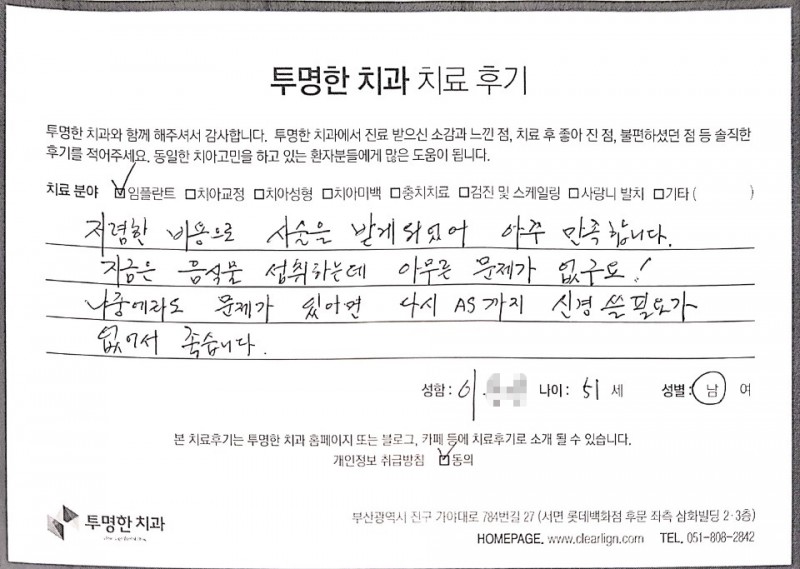 투명한 치과 치료 후기
투명한 치과와 함께 해주셔서 감사합니다. 투명한 치과에서 진료 받으신 소감과 느낀 점, 치료 후 좋아 진 점, 불편하셨던 점 등 솔직한
후기를 적어주세요. 동일한 치아고민을 하고 있는 환자분들에게 많은 도움이 됩니다.
치료 분야 ☑임플란트 □치아교정 □치아성형 □치아미백 □충치치료 □검진 및 스케일링 □사랑니 발치 □기타 ( )
저렴한 비용으로 시술을 받게되었어 아주 만족합니다.
지금은 음식물 섭취하는데 아무른 문제가 없구요!
나중에라도 문제가 있어면 다시 AS까지 신경 쓸필요가
없어서 좋습니다.
성함: 이 나이: 51 세 성별: 남 여
본 치료후기는 투명한 치과 홈페이지 또는 블로그, 카페 등에 치료후기로 소개 될 수 있습니다.
개인정보 취급방침 ☑동의
투명한 치과
부산광역시 진구 가야대로 784번길 27 (서면 롯데백화점 후문 좌측 삼화빌딩 2·3층)
HOMEPAGE. www.clearlign.com TEL. 051-808-2842